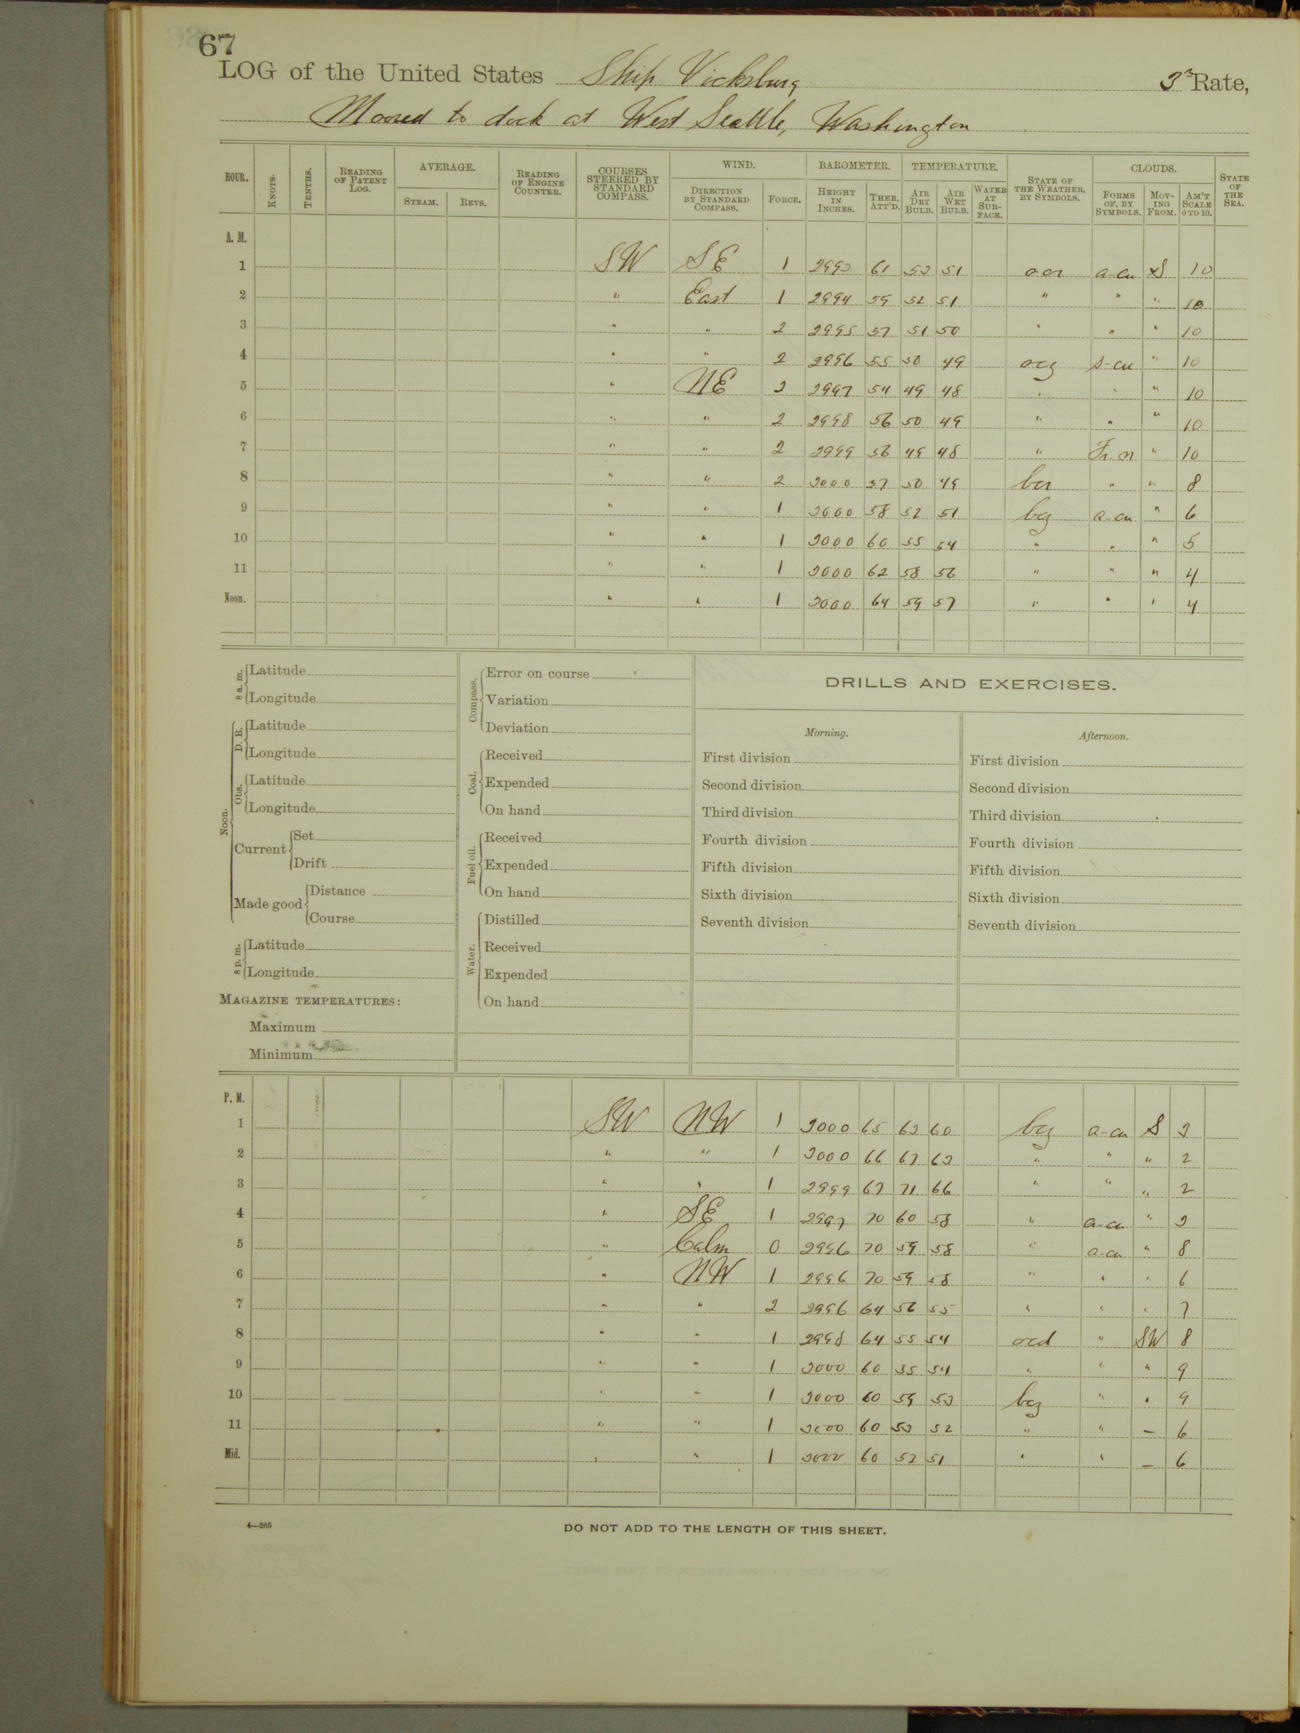 67
LOG of the United States Ship Vicksburg 3d Rate,
Moored to dock at West Seattle, Washington
HOUR. KNOTS. TENTHS. READING OF PATENT LOG. AVERAGE. STEAM. REVS. READING OF ENGINE COUNTER. COURSES STEERED BY STANDARD COMPASS. WIND. DIRECTION BY STANDARD COMPASS. FORCE. BAROMETER. HEIGHT IN INCHES. THER. ATT'D. TEMPERATURE. AIR DRY BULB. AIR WET BULB. WATER AT SURFACE. STATE OF THE WEATHER, BY SYMBOLS. CLOUDS. FORMS OF, BY SYMBOLS. MOVING FROM. AM'T SCALE 0 TO 10. STATE OF THE SEA.
A. M.
1 SW SE 1 2993 61 53 51 a-cu S 10
2 " East 1 2994 59 52 51 " " " 10
3 " " 2 2995 57 51 50 " " " 10
4 " " 2 2996 55 50 49 ocz s-cu " 10
5 " NE 2 2997 54 49 48 " " " 10
6 " " 2 2998 56 50 49 " " " 10
7 " " 2 2999 56 49 48 " " 10
8 " " 2 3000 57 50 49 " " 8
9 " " 1 3000 58 52 51 bcz a-cu " 6
10 " " 1 3000 60 55 54 " " " 5
11 " " 1 3000 62 58 56 " " " 4
Noon. " " 1 3000 64 59 57 " " " 4
8 a. m. Latitude
Longitude
Noon. D. R. Latitude
Longitude
Obs. Latitude
Longitude
Current Set
Drift
Made good Distance
Course
8 p. m. Latitude
Longitude
MAGAZINE TEMPERATURES:
Maximum
Minimum
Compass. Error on course
Variation
Deviation
Coal. Received
Expended
On hand
Fuel oil. Received
Expended
On hand
Water. Distilled
Received
Expended
On hand
DRILLS AND EXERCISES.
Morning.
First division
Second division
Third division
Fourth division
Fifth division
Sixth division
Seventh division
Afternoon.
First division
Second division
Third division
Fourth division
Fifth division
Sixth division
Seventh division
P. M.
1 SW NW 1 3000 65 63 60 bcz a-cu S 3
2 " " 1 3000 66 67 63 " " " 2
3 " " 1 2999 67 71 66 " " " 2
4 " SE 1 2997 70 60 58 " a-cu " 3
5 " Calm 0 2996 70 59 58 " a-cu " 8
6 " NW 1 2996 70 59 58 " " " 6
7 " " 2 2996 64 56 55 " " " 7
8 " " 1 2998 64 55 54 ocd " SW 8
9 " " 1 3000 60 55 54 " " " 9
10 " " 1 3000 60 53 bcz " " 9
11 " " 1 3000 60 53 52 " " — 6
Mid. " " 1 3000 60 52 51 " " — 6
4—265
DO NOT ADD TO THE LENGTH OF THIS SHEET.